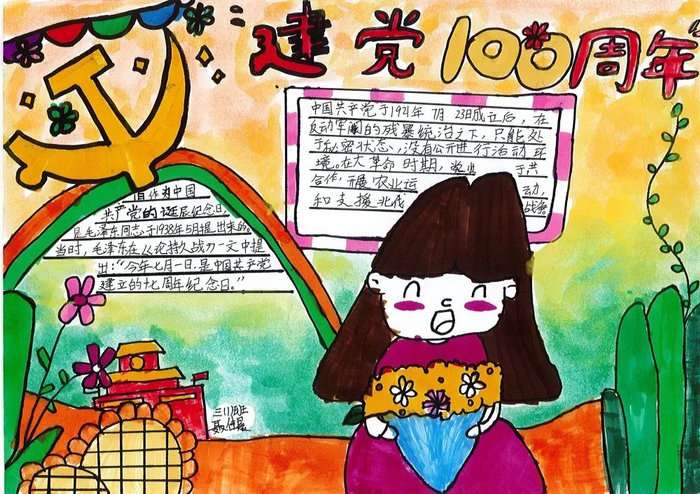 建党100周年
中国共产党于1921年7月23日成立后，在
反动军阀的残暴统治之下，只能处
于秘密状态，没有公开进行活动环
境。在大革命时期， 于共
合作，开展农业运 动，
和支援北伐 战争
作为中国
共产党的诞辰纪念日，
是毛泽东同志于1938年5月提出来的。
当时，毛泽东在《论持久战》一文中提
出：“今年七月一日，是中国共产党
建立的十七周年纪念日。”
三(1)班